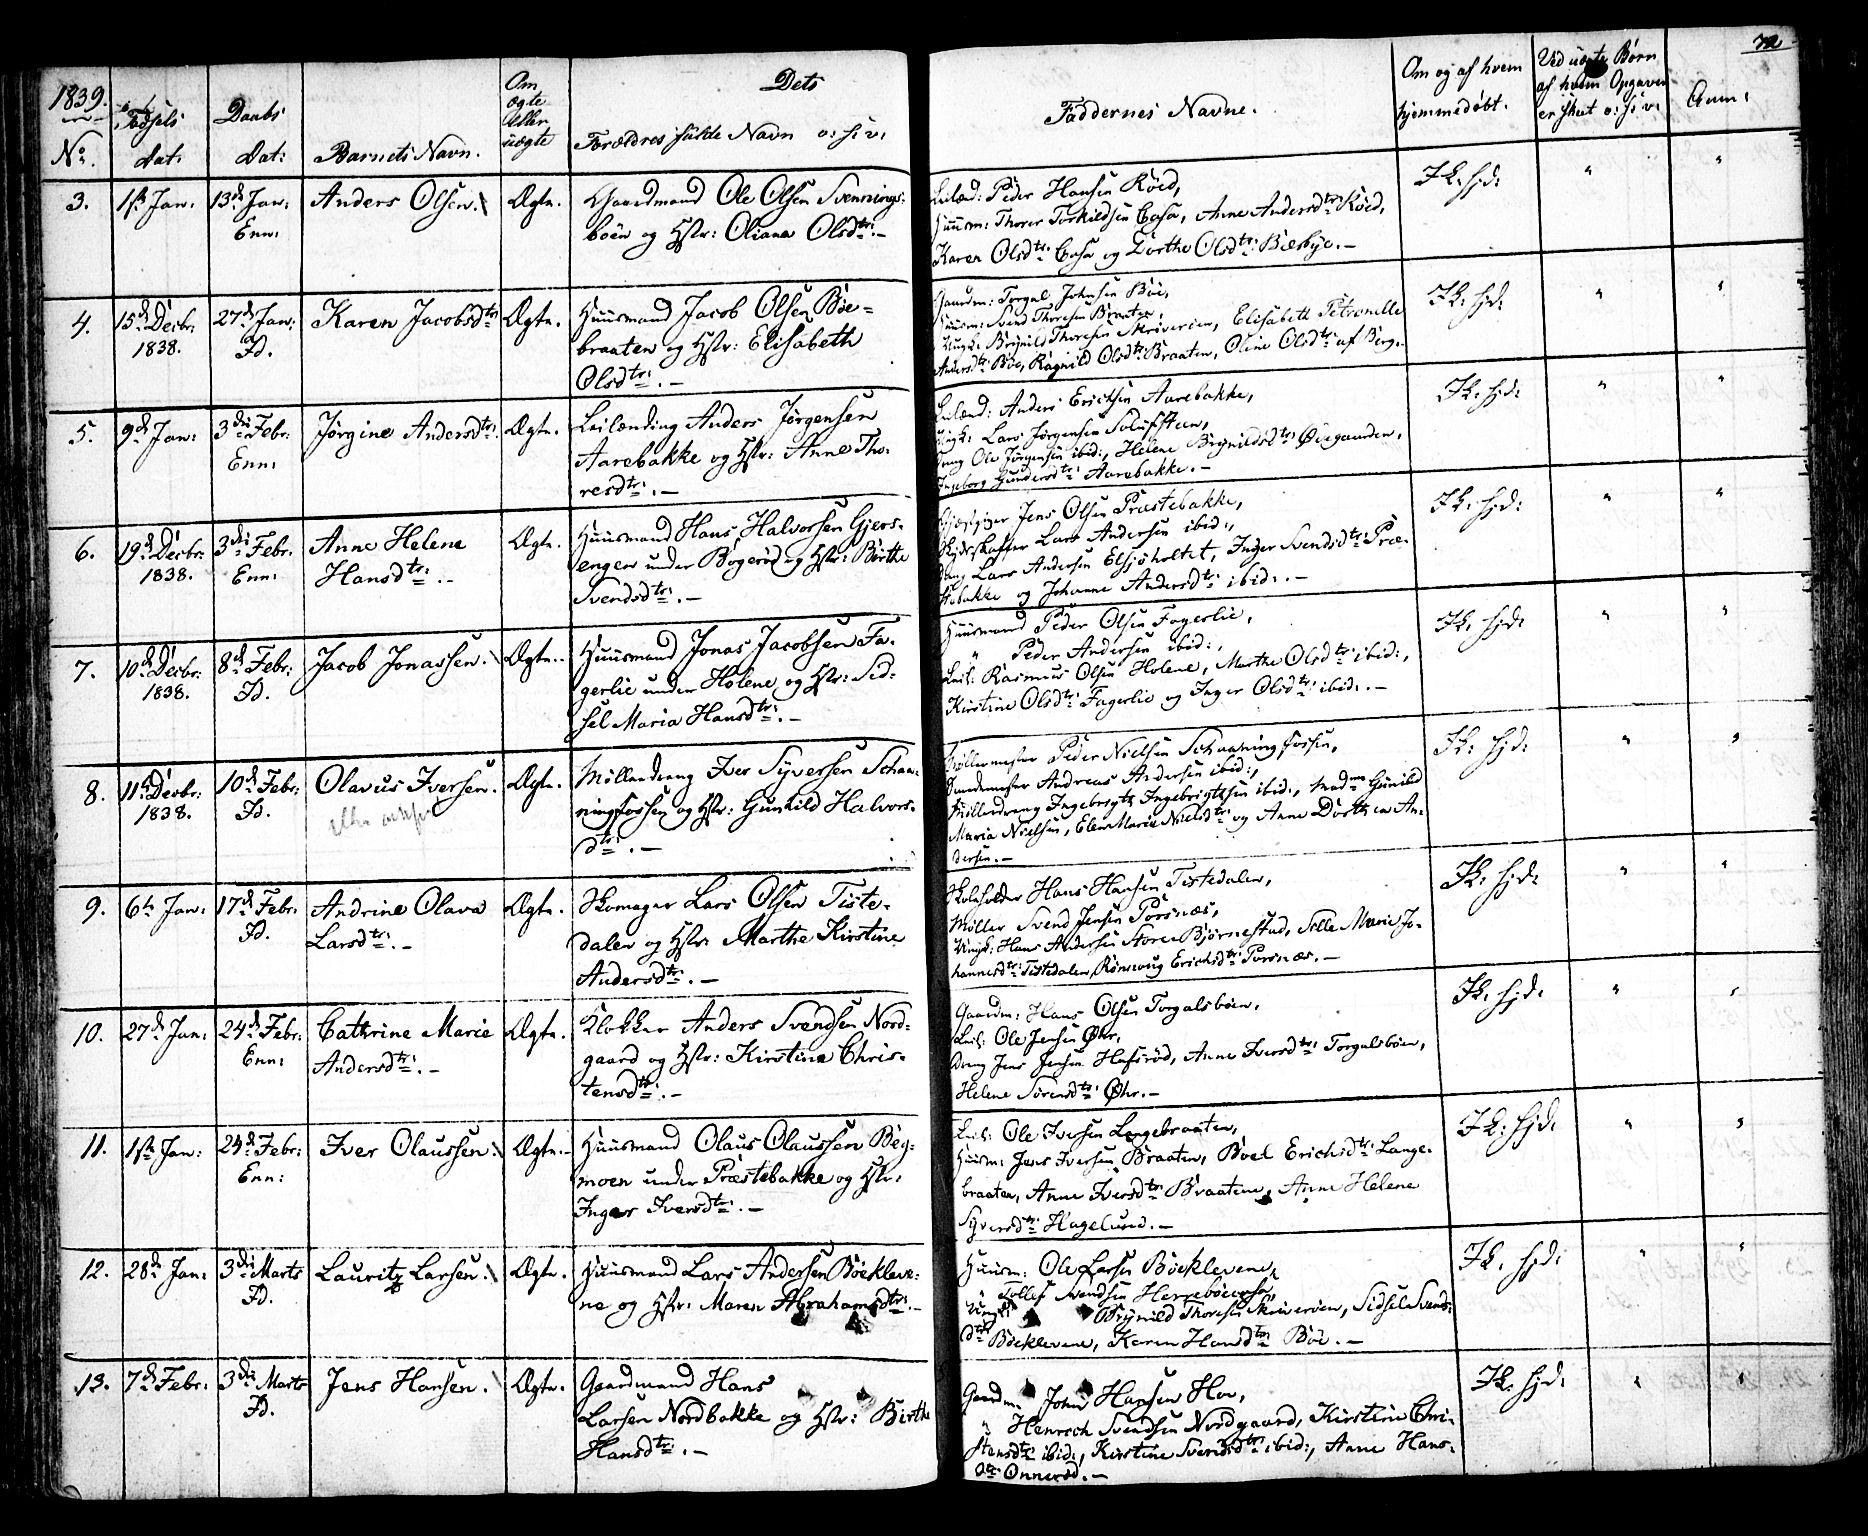 1839.
72
No.
Fødsels
dat:
Daabs
Dat:
Barnets Navn.
Om
Ægte
Eller
uægte
Dets
Forældres fulde Navn o: s: v:
Faddernes Navne.
Om og af hvem
hjemmedøbt.
Ved uægte Børn
af hvem Opgaven
er skeet o: s: v:
Anm:
3. 1ste Jan: 13de Jan: Anders Olsen. Ægte. Gaardmand Ole Olsen Svennings-
Enn: böen og Hstr: Oliana Olsdtr: -
Leilænd: Peder Hansen Röed, Ik: hjd: " "
Huusm: Thorer Torkildsen Casa, Anne Andersdtr: Röed,
Karen Olsdtr: Casa og Dorthe Olsdtr: Bækbye. -
4. 15de Decbr: 27de Jan: Karen Jacobsdtr: Ægte. Huusmand Jacob Olsen Böe-
1838. Fd. braaten og Hstr: Elisabeth
Olsdtr: . -
Gaardm: Torgal Johnsen Böe, Ik: hjd: " "
Huusm: Svend Thoresen Braaten,
Ungk: Brynild Thoresen Skriverøen, Elisabett Petronelle
Andersdtr: Böe, Ragnild Olsdtr: Braaten, Oline Olsdtr: af Berg.
5. 9de Jan: 3die Febr: Jørgine Andersdtr: Ægte. Leilænding Anders Jørgensen
Enn: Aarebakke og Hstr: Anne Tho-
resdtr: . -
Leilænd: Anders Ericksen Aarebakke, Ik: hjd: " "
Ungk: Lars Jørgensen
Dreng Ole Jørgensen ibid:, Helene Brynildsdtr: Øiegaarden,
Ingeborg Gundersdtr: Aarebakke. -
6. 19de Decbr: 3die Febr: Anne Helene Ægte. Huusmand Hans Halvorsen Gjers-
1838. Enn: Hansdtr: . - engen under Bögeröd og Hstr: Birthe
Svendsdtr: . -
Jens Olsen Præstebakke, Ik: hjd: " "
Skydsskaffer Lars Andersen ibid:,
Dreng Lars Andersen Elsjöholtet, Inger Svendsdtr: Præ-
stebakke og Johanne Andersdtr: ibid: . -
7. 10de Decbr: 8de Febr: Jacob Jonassen. Ægte. Huusmand Jonas Jacobsen Fa-
1838. Fd. gerlie under Holene og Hstr: Sid-
sel Maria Hansdtr: . -
Huusmand Peder Olsen Fagerlie, Ik: hjd: " "
" Peder Andersen ibid:,
Leil: Rasmus Olsen Holene, Marthe Olsdtr: ibid:,
Kirstine Olsdtr: Fagerlie og Inger Olsdtr: ibid: . -
8. 11te Decbr: 10de Febr: Olavus Iversen. Ægte. Mölledreng Iver Syversen Schaa-
1838. Fd. ningsfossen og Hstr: Gunhild Halvors-
dtr: . -
Möllermester Peder Nielsen Schaaningsfossen, Ik: hjd: " "
Andreas Andersen ibid:,
Mölledreng Ingebregt Ingebrigtsen ibid:, Mad: Gunild
Maria Nielsen, Elen Marie Nielsdtr: og Anne Dorthea An-
dersen. -
9. 6te Jan: 17de Febr: Andrine Olava Ægte. Skomager Lars Olsen Tiste-
Fd. Larsdtr: . - dalen og Hstr: Marthe Kirstine
Andersdtr: . -
Skoleholder Hans Hansen Tistedalen, Ik: hjd: " "
Möller Svend Jensen Porsnæs,
Ungk: Hans Andersen Store Bjørnestad, Sille Marie Jo-
hannesdtr: Tistedalen, Rönnaug Erichsdtr: Porsnæs. -
10. 27de Jan: 24de Febr: Cathrine Marie Ægte. Klokker Anders Svendsen Nord-
Enn: Andersdtr: . - gaard og Hstr: Kirstine Chris-
tensdtr: . -
Gaardm: Hans Olsen Torgalsböen, Ik: hjd: " "
Leil: Ole Jensen Øhr,
Dreng Jens Jensen Hafsröd, Anne Iversdtr: Torgalsböen,
Helene Sörensdtr: Øhr. -
11. 1ste Jan: 24de Febr: Iver Olaussen. Ægte. Huusmand Olaus Olaussen Bey-
Enn: moen under Præstebakke og Hstr:
Inger Iversdtr: . -
Leil: Ole Iversen Langebraaten, Ik: hjd: " "
Huusm: Jens Iversen Braaten, Boel Erichsdtr: Lange-
braaten, Anne Iversdtr: Braatene, Anne Helene
Syversdtr: Hagelund. -
12. 28de Jan: 3die Marts Lauritz Larsen. Ægte. Huusmand Lars Andersen Böekleve-
Fd. ne og Hstr: Maren Abrahamsdtr: . -
Huusm: Ole Larsen Böeklevene, Ik: hjd: " "
" Tollef Svendsen
Ungk: Brynild Thoresen Skriverøen, Sidsel Svends-
dtr: Böeklevene, Karen Hansdtr: Böe. -
13. 7de Febr: 3die Marts Jens Hansen. Ægte. Gaardmand Hans
Fd. Larsen Nordbakke og Hstr: Birthe
Hansdtr: . -
Gaardm: John Hansen Hov, Ik: hjd: " "
" Henrich Svendsen Nordgaard, Kirstine Chri-
stensdtr: ibid:, Kirstine Svendsdtr: ibid:, Anne Hans-
dtr: Onneröd. -